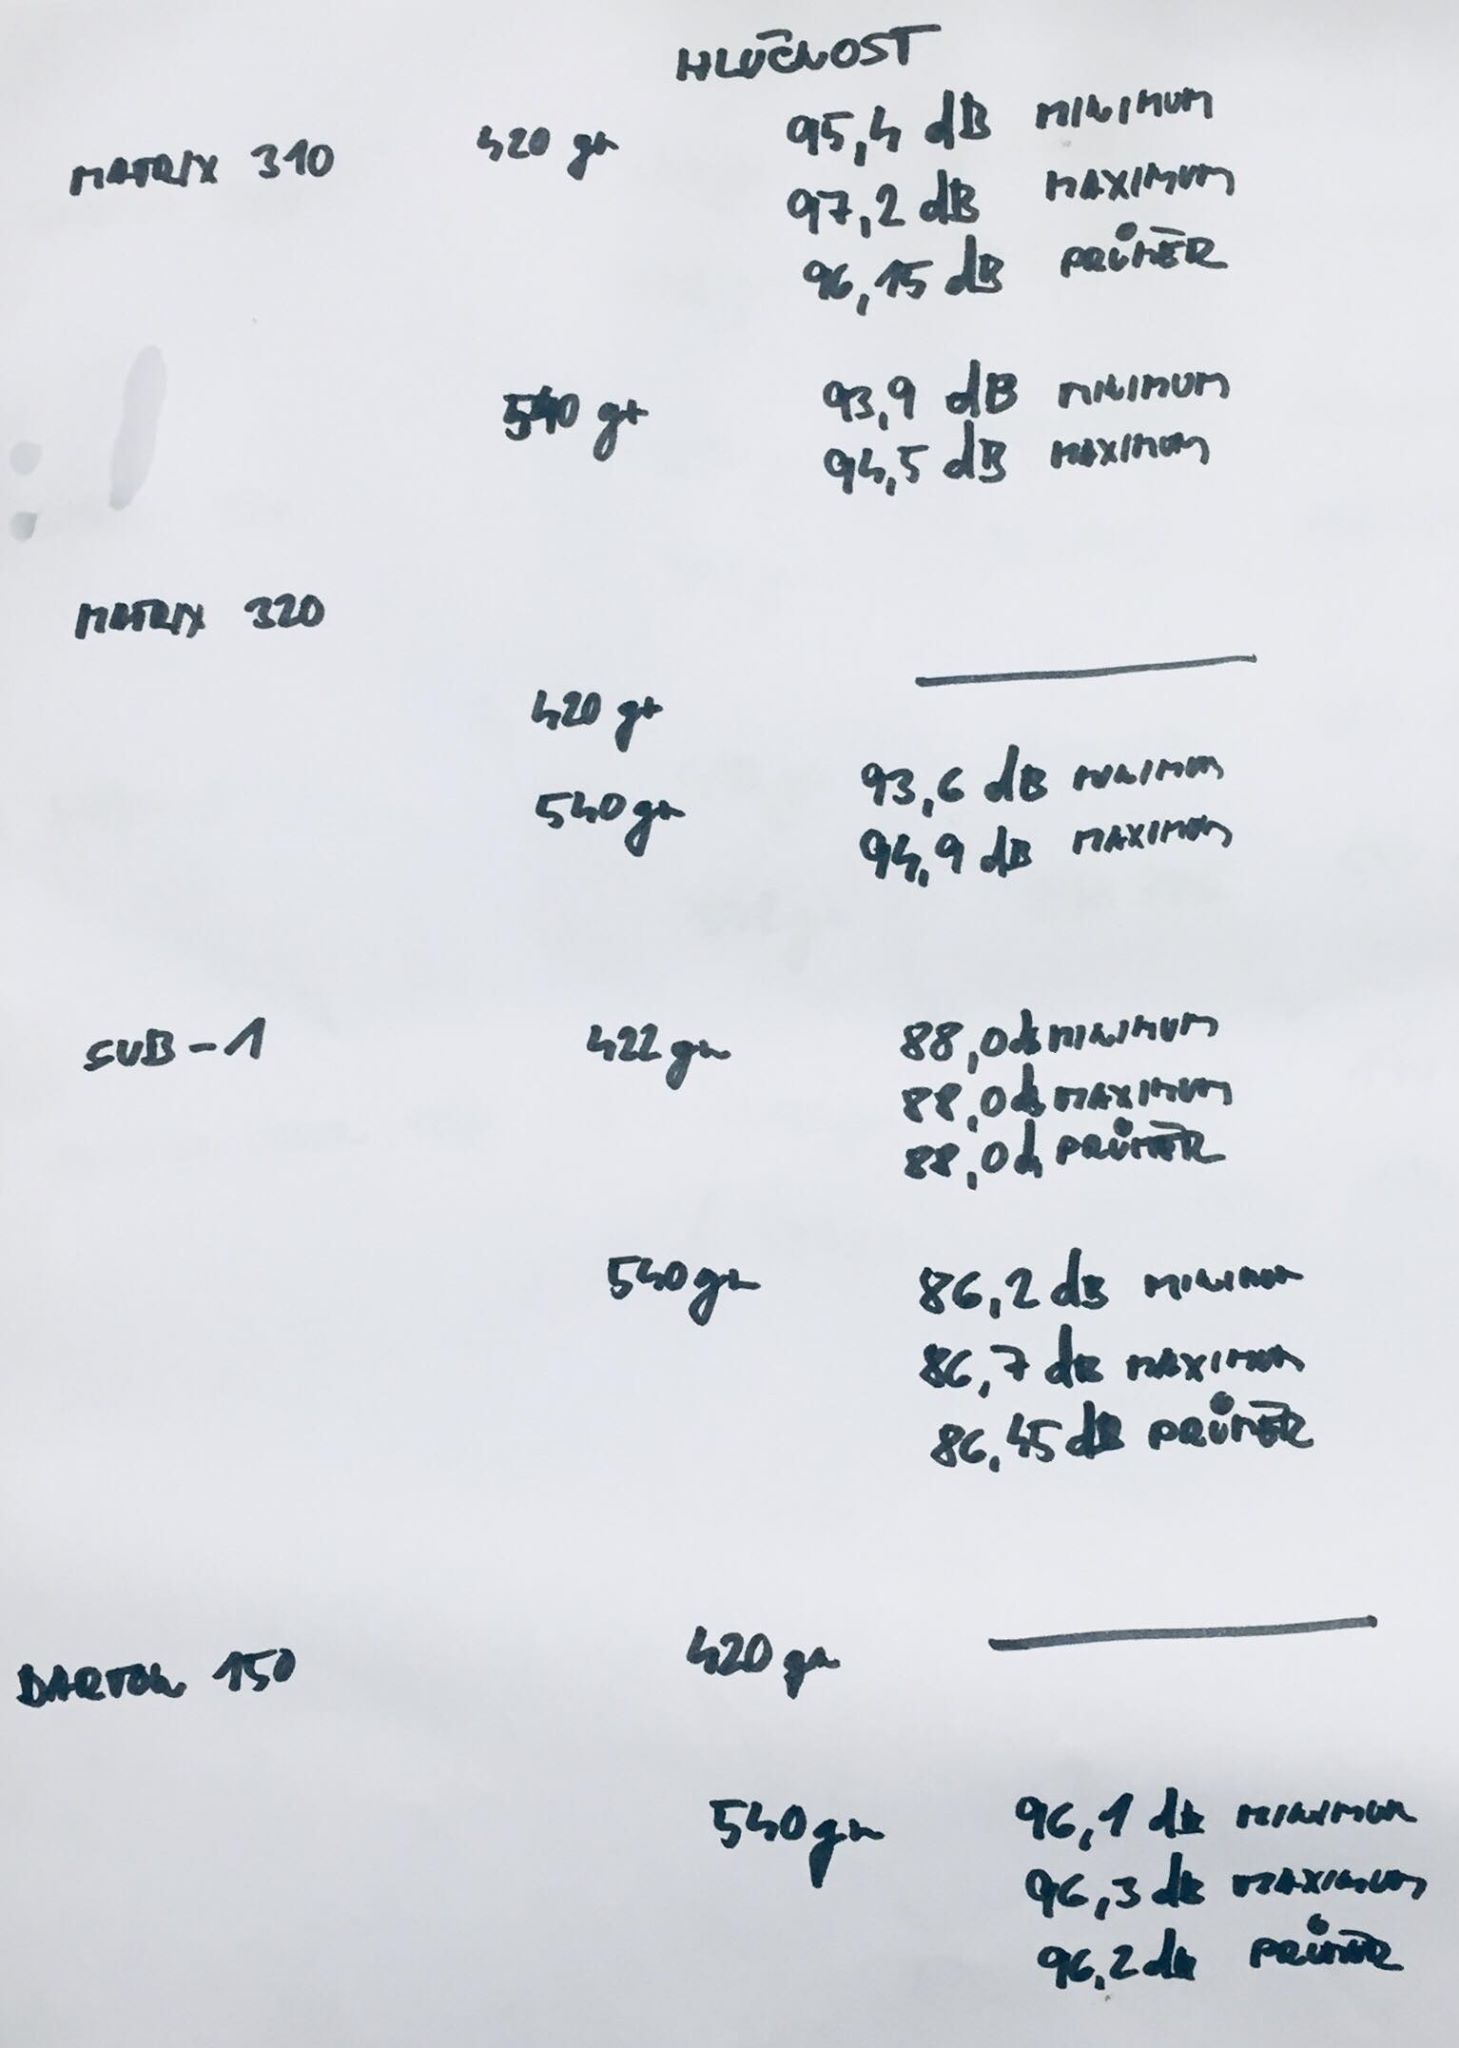 HLUČNOST
MATRIX 310 420 gr 95,4 dB MINIMUM
97,2 dB MAXIMUM
96,15 dB PRŮMĚR
540 gr 93,9 dB MINIMUM
94,5 dB MAXIMUM
MATRIX 320
420 gr
540 gr 93,6 dB MINIMUM
94,9 dB MAXIMUM
SUB-1 422 gr 88,0 dB MINIMUM
88,0 dB MAXIMUM
88,0 d PRŮMĚR
540 gr 86,2 dB MINIMUM
86,7 dB MAXIMUM
86,45 dB PRŮMĚR
DARTON 150 420 gr
540 gr 96,1 dB MINIMUM
96,3 dB MAXIMUM
96,2 dB PRŮMĚR